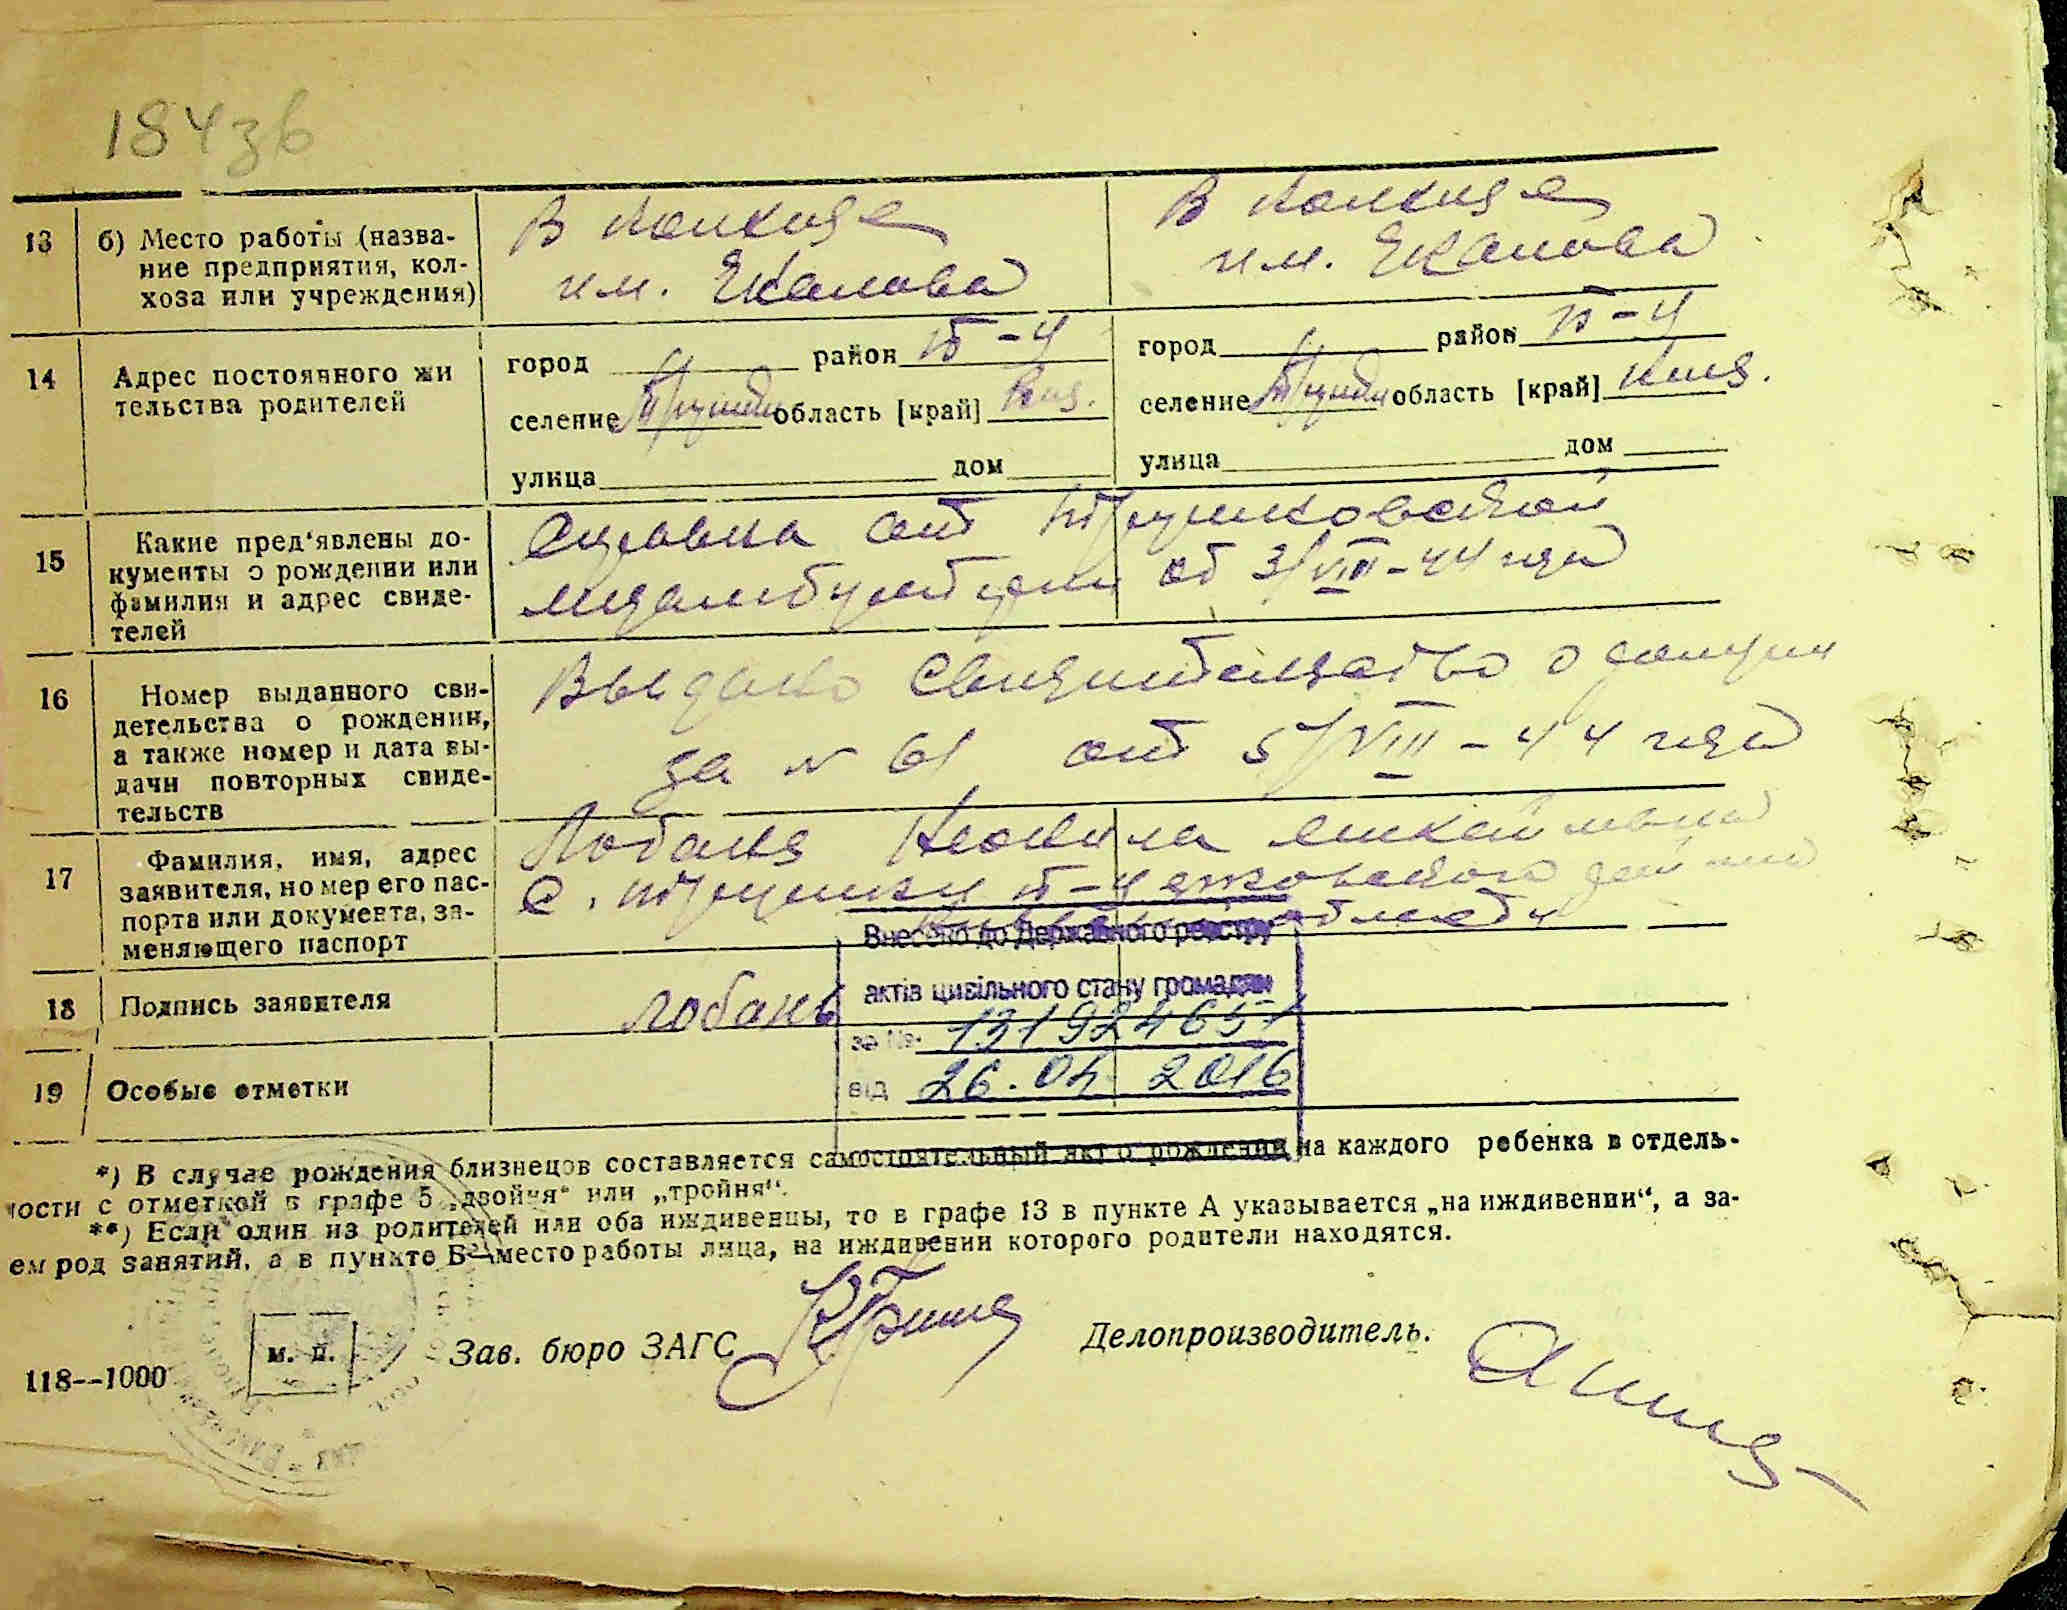 184зв
13 б) Место работы (назва-
ние предприятия, кол-
хоза или учреждения)
В колхозе
им. Чкалова
В колхозе
им. Чкалова
14 Адрес постоянного жи
тельства родителей
город район П-Ч
селение область [край]
улица дом
город район П-Ч
селение область [край] Киев.
улица дом
15 Какие пред'явлены до-
кументы о рождении или
фамилия и адрес свиде-
телей
Справка от
от 3/VIII-44 года
16 Номер выданного сви-
детельства о рождении,
а также номер и дата вы-
дачи повторных свиде-
тельств
Выдано Свидетельство о
за № 61 от 5/VIII-44 года
17 Фамилия, имя, адрес
заявителя, номер его пас-
порта или документа, за-
меняющего паспорт
Лобань
С. П-Ч
области
18 Подпись заявителя
Лобань
19 Особые отметки
Внесено до Державного реєстру
актів цивільного стану громадян
за №
від 26.04 2016
*) В случае рождения близнецов составляется самостоятельный акт о рождении на каждого ребенка в отдель-
ности с отметкой в графе 5 „двойня“ или „тройня“.
**) Если один из родителей или оба иждивенцы, то в графе 13 в пункте А указывается „на иждивении“, а за-
ем род занятий, а в пункте Б—место работы лица, на иждивении которого родители находятся.
м. п.
Зав. бюро ЗАГС
Делопроизводитель.
118--1000